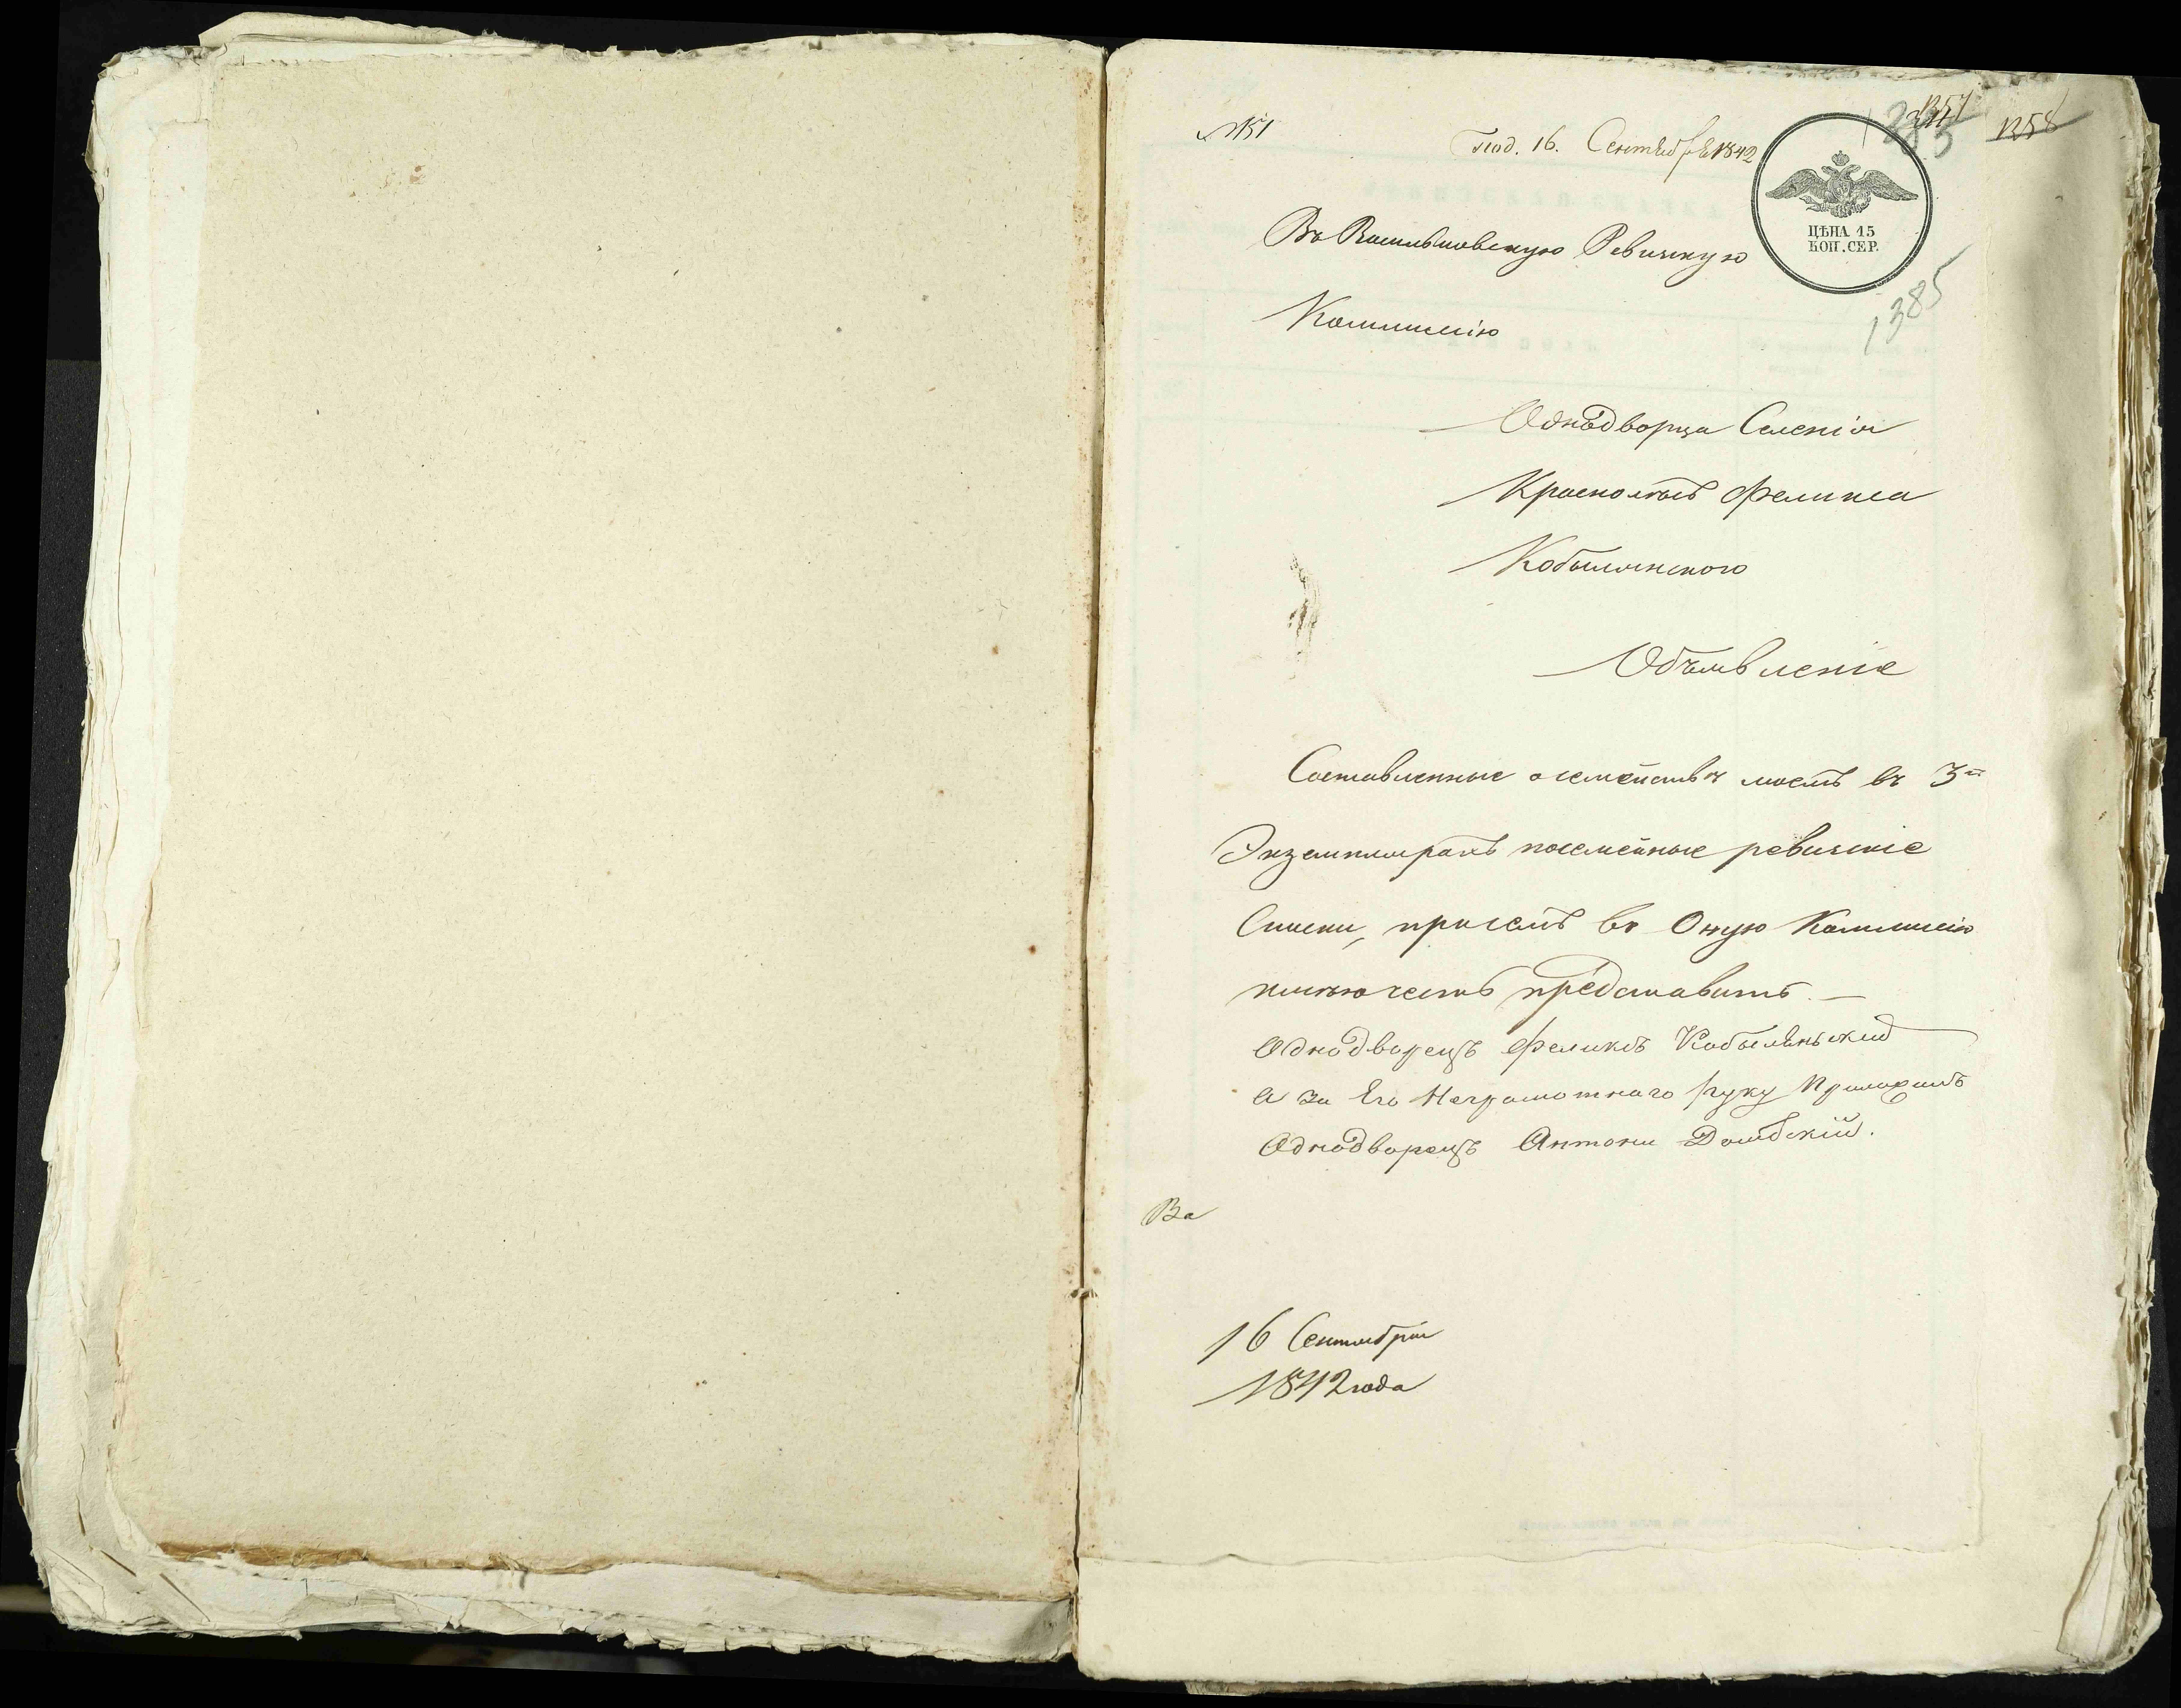 №51
Под. 16. Сентября 1842
1357
1358
ЦѢНА 15
КОП. СЕР.
1385
Въ Васильковскую Ревизкую
Коммисію
Однодворца Селенія
Краснолѣсъ Феликса
Кобылянского
Объявленіе
Составленные о семействѣ моемъ въ 3хъ
Экземплярахъ посемейные ревизкіе
Списки, присемъ въ Оную Коммисію
имѣю честь представить. —
Однодворецъ Феликсъ Кобылянскій
а за Его Неграмотнаго руку Приложилъ
Однодворецъ Антони Домбскій.
16 Сентября
1842 года